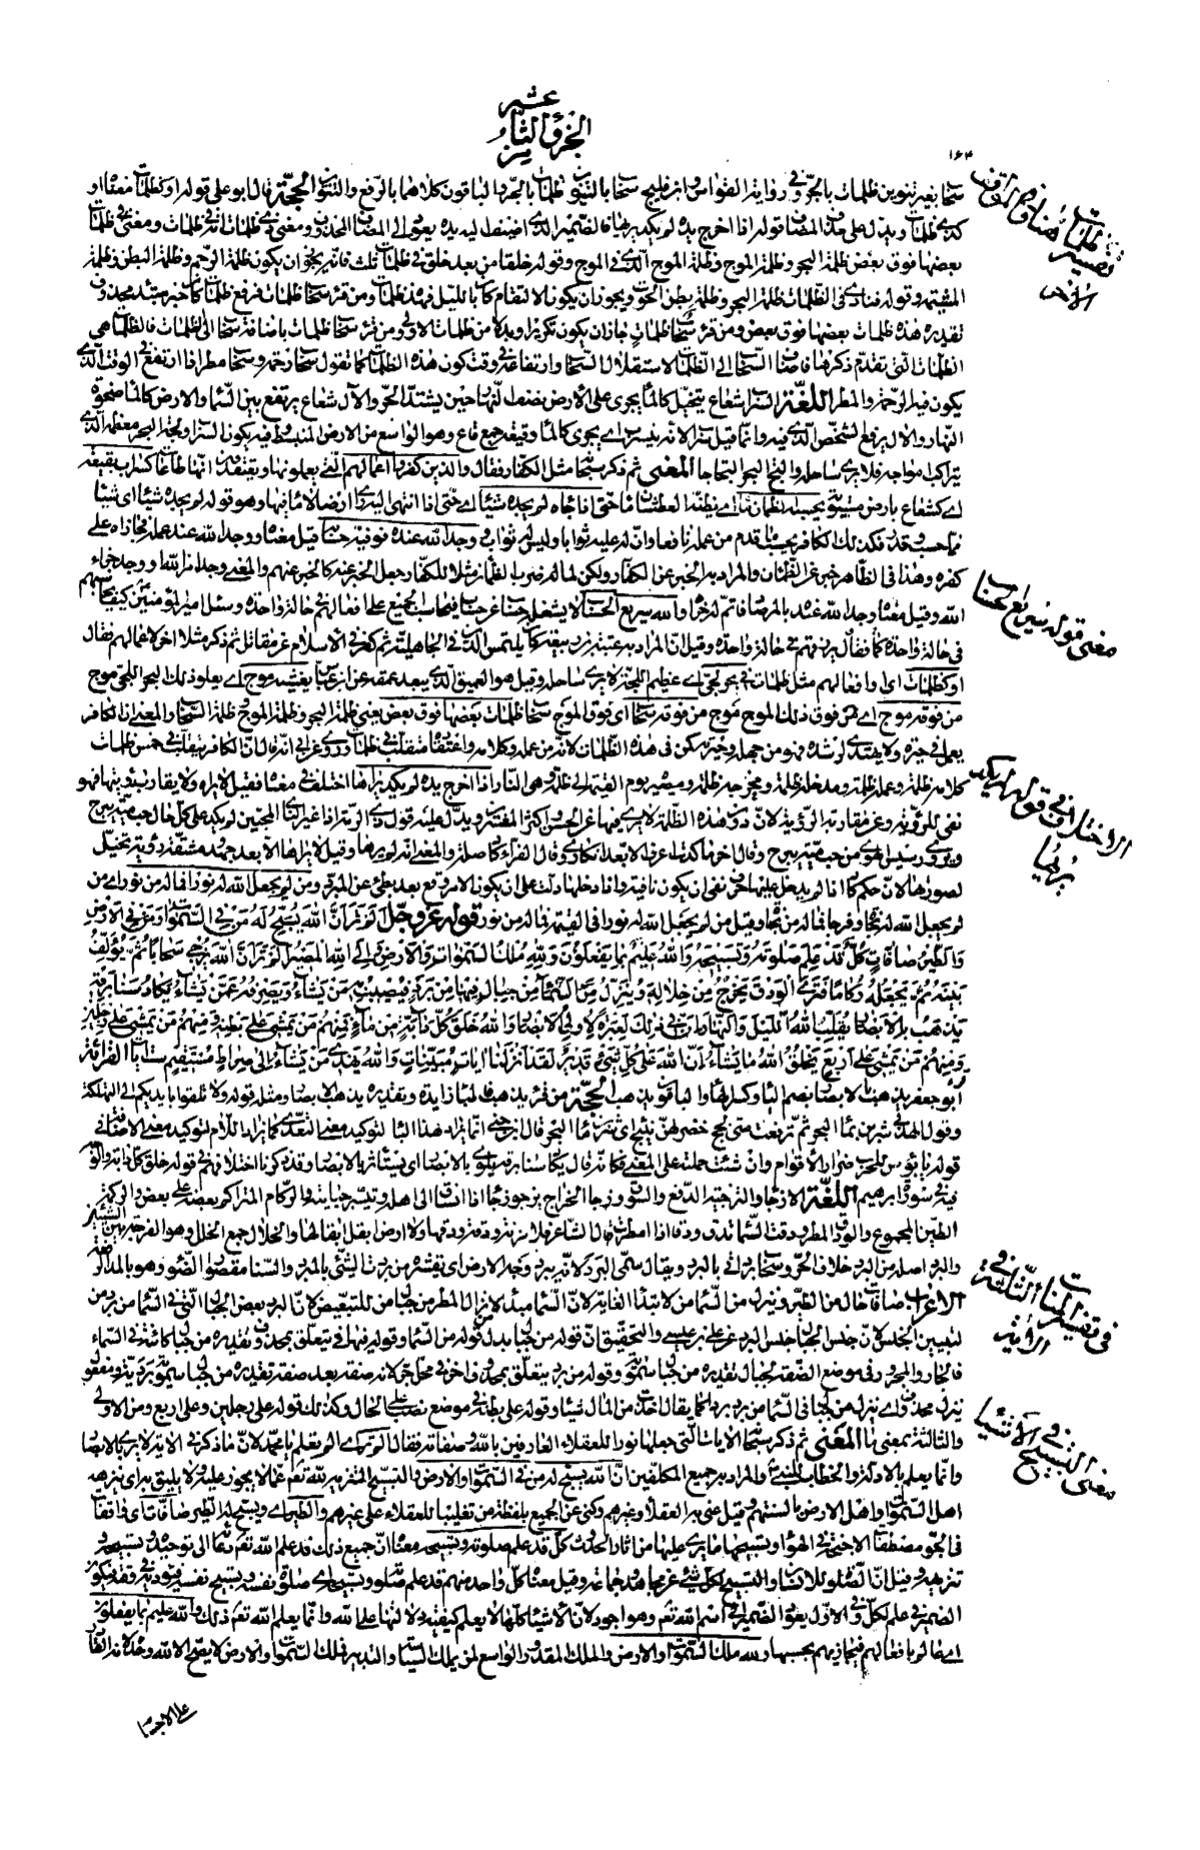 الجزؤ الثامن عشر
١٦٤
سحاب بغير تنوين ظلمات بالجر وفي رواية القواس وابن فليح سحاب بالتنوين ظلمات بالجر والباقون كلاهما بالرفع والتنوين الحجة قال ابو علي قوله او كظلمات معناه او
كذي ظلمات ويدل على حذف المضاف قوله اذا اخرج يده لم يكد يريها فالضمير الذي اضيف اليه يده يعود الى المضاف المحذوف ومعنى ذي ظلمات انه في ظلمات ومعنى ظلمات
بعضها فوق بعض ظلمة البحر وظلمة الموج وظلمة الموج الذي فوق الموج وقوله خلقا من بعد خلق في ظلمات ثلث فانه يجوز ان يكون ظلمة الرحم وظلمة البطن وظلمة
المشيمة وقوله فنادى في الظلمات ظلمة البحر وظلمة بطن الحوت ويجوز ان يكون الالتقام كان بالليل فهذه ظلمات ومن قرء سحاب ظلمات فرفع ظلمات كان خبر مبتدء محذوف
تقديره هذه ظلمات بعضها فوق بعض ومن قرء سحاب ظلمات جاز ان يكون تكريرا وبدلا من ظلمات الاولى ومن قرء سحاب ظلمات باضافة سحاب الى ظلمات فالظلمات هي
الظلمات التي تقدم ذكرها فاضاف السحاب الى الظلمات لاستقلال السحاب وارتفاعه في وقت كون هذه الظلمات كما تقول سحاب رحمة وسحاب مطر اذا ارتفع في الوقت الذي
يكون فيه الرحمة والمطر اللغة السراب شعاع يتخيل كالماء يجري على الارض نصف النهار حين يشتد الحر والآل شعاع يرتفع بين السماء والارض كالماء ضحوة
النهار والآل يرفع الشخص الذي فيه وانما قيل سراب لانه ينسرب اي يجري كالماء وقيعة جمع قاع وهو الواسع من الارض المنبسط وفيه يكون السراب ولجة البحر معظمه الذي
يتراكب امواجه فلا يرى ساحله والتج البحر التجاجا المعنى ثم ذكر سبحانه مثل الكفار فقال والذين كفروا اعمالهم التي يعملونها ويعتقدون انها طاعات كسراب بقيعة
اي كشعاع بارض مستوية يحسبه الظمان ماء اي يظنه العطشان ماء حتى اذا جاءه لم يجده شيئا اي حتى اذا انتهى اليه راى ارضا لا ماء فيها وهو قوله لم يجده شيئا اي شيئا
مما حسب وقدر فكذلك الكافر يحسب ما قدم من عمله نافعا وان له عليه ثوابا وليس له ثواب ووجد الله عنده فوفيه حسابه قيل معناه ووجد الله عند عمله فجازاه على
كفره وهذا في الظاهر خبر عن الظمآن والمراد به الخبر عن الكفار ولكن لما ضرب الظمآن مثلا للكفار جعل الخبر عنه كالخبر عنهم والمعنى وجد امر الله ووجد جزاء
الله وقيل معناه وجد الله عنده بالمرصاد فاتم له جزاءه والله سريع الحساب لا يشغله حساب عن حساب فيحاسب الجميع على افعالهم في حالة واحدة وسئل امير المؤمنين كيف يحاسبهم
في حالة واحدة فقال كما يرزقهم في حالة واحدة وقيل ان المراد به عتبة بن ربيعة كان يلتمس الدين في الجاهلية ثم كفر في الاسلام عن مقاتل ثم ذكر مثلا آخر لاعمالهم فقال
او كظلمات اي او افعالهم مثل ظلمات في بحر لجي اي عظيم اللجة لا يرى ساحله وقيل هو العميق الذي يبعد عمقه عن ابن عباس يغشيه موج اي يعلو ذلك البحر اللجي موج
من فوقه موج اي من فوق ذلك الموج موج من فوقه سحاب اي فوق الموج سحاب ظلمات بعضها فوق بعض يعني ظلمة البحر وظلمة الموج وظلمة السحاب والمعنى ان الكافر
يعمل في حيرة ولا يهتدي لرشده فهو من جهله وحيرته كمن في هذه الظلمات لانه من عمله وكلامه واعتقاده متقلب في ظلمات وروي عن ابي انه قال ان الكافر يتقلب في خمس ظلمات
كلامه ظلمة وعمله ظلمة ومدخله ظلمة ومخرجه ظلمة ومصيره يوم القيمة الى ظلمة وهي النار اذا اخرج يده لم يكد يريها اختلف في معناه فقيل لا يراها ولا يقارب رؤيتها فهو
نفي للرؤية وعن مقاربة الرؤية لان دون هذه الظلمة لا يرى فيها عن الحسن واكثر المفسرين ويدل عليه قول ذي الرمة اذا غير النأي المحبين لم يكد على كل حال حب مية يبرح
ويروى رسيس الهوى من حب مية يبرح وقال آخر ما كدت اعرف الا بعد انكار وقال الفراء كاد صلة والمعنى انه لم يرها وقيل لا يراها الا بعد جهد ومشقة رؤية تخيل
لصورتها لان حكم كاد اذا لم يدخل عليها حرف نفي ان يكون نافية واذا دخلها دلت على ان يكون الامر وقع بعد بطئ عن المبرد ومن لم يجعل الله له نورا فما له من نور اي من
لم يجعل الله له نجاة وفرجا فما له من نجاة وقيل من لم يجعل الله له نورا في القيمة فما له من نور قوله عز وجل اَلَمْ تَرَ اَنَّ اللهَ يُسَبِّحُ لَهُ مَنْ فِي السَّمٰوَاتِ وَمَنْ فِي الْاَرْضِ
وَالطَّيْرُ صَافَّاتٍ كُلٌّ قَدْ عَلِمَ صَلٰوتَهُ وَتَسْبِيحَهُ وَاللهُ عَلِيمٌ بِمَا يَفْعَلُونَ وَلِلّٰهِ مُلْكُ السَّمٰوَاتِ وَالْاَرْضِ وَاِلَى اللهِ الْمَصِيرُ اَلَمْ تَرَ اَنَّ اللهَ يُزْجِي سَحَابًا ثُمَّ يُؤَلِّفُ
بَيْنَهُ ثُمَّ يَجْعَلُهُ رُكَامًا فَتَرَى الْوَدْقَ يَخْرُجُ مِنْ خِلَالِهِ وَيُنَزِّلُ مِنَ السَّمَاءِ مِنْ جِبَالٍ فِيهَا مِنْ بَرَدٍ فَيُصِيبُ بِهِ مَنْ يَشَاءُ وَيَصْرِفُهُ عَمَّنْ يَشَاءُ يَكَادُ سَنَا بَرْقِهِ
يَذْهَبُ بِالْاَبْصَارِ يُقَلِّبُ اللهُ اللَّيْلَ وَالنَّهَارَ اِنَّ فِي ذٰلِكَ لَعِبْرَةً لِاُولِي الْاَبْصَارِ وَاللهُ خَلَقَ كُلَّ دَابَّةٍ مِنْ مَاءٍ فَمِنْهُمْ مَنْ يَمْشِي عَلَى بَطْنِهِ وَمِنْهُمْ مَنْ يَمْشِي عَلَى رِجْلَيْنِ
وَمِنْهُمْ مَنْ يَمْشِي عَلَى اَرْبَعٍ يَخْلُقُ اللهُ مَا يَشَاءُ اِنَّ اللهَ عَلَى كُلِّ شَيْءٍ قَدِيرٌ لَقَدْ اَنْزَلْنَا اٰيَاتٍ مُبَيِّنَاتٍ وَاللهُ يَهْدِي مَنْ يَشَاءُ اِلَى صِرَاطٍ مُسْتَقِيمٍ القراءة
ابو جعفر يذهب بالابصار بضم الياء وكسر الهاء والباقون يذهب الحجة من قرء يذهب فالباء زايدة وتقديره يذهب الابصار ومثله قوله ولا تلقوا بايديكم الى التهلكة
وقول الهذلي شربن بماء البحر ثم ترفعت متى لجج خضر لهن نئيج اي شربن ماء البحر قال ابن جني انما يزاد هذا الباء لتوكيد معنى التعدي كما يزاد اللام لتوكيد معنى الاضافة في
قوله يا بؤس للحرب ضرارا لاقوام وان شئت حملته على المعنى فكانه قال يكاد سنا برقه يلوي بالابصار اي يستأثر بالابصار وقد ذكرنا اختلافهم في قوله خلق كل دابة والوجه
فيه في سورة ابرهيم اللغة الازجاء والتزجية الدفع والسوق
والبرد اصله من البرد خلاف الحر وسحاب برد اتى بالبرد ويقال سمي البرد لانه يبرد وجه الارض اي يقشره من بردت الشيئ بالمبرد والسنا مقصور الضوء وهو بالمد الرفعة
الاعراب صافات حال من الطير وينزل من السماء من لابتداء الغاية لان السماء مبتدء لانزال المطر من جبال من للتبعيض لان البرد بعض الجبال التي في السماء من برد من
لتبيين الجنس لان جنس الجبال جنس البرد عن علي بن عيسى والتحقيق ان قوله من جبال بدل من قوله من السماء وقوله فيها في يتعلق بمحذوف وتقديره من جبال كائنة في السماء
فالجار والمجرور في موضع الصفة لجبال وقوله من برد يتعلق بمحذوف آخر في محل جر لانه صفة بعد صفة
والثالثة بمعنى ما المعنى ثم ذكر سبحانه الآيات التي جعلها نورا للعقلاء العارفين بالله وصفاته فقال الم تر اي الم تعلم يا محمد لان ما ذكر في الآية لا يرى بالابصار
وانما يعلم بالادلة والخطاب للنبي والمراد به جميع المكلفين ان الله يسبح له من في السموات والارض والتسبيح التنزيه لله تعم عما لا يجوز عليه ولا يليق به اي ينزهه
اهل السموات واهل الارض بالسنتهم وقيل عنى به العقلاء وغيرهم وكنى عن الجميع بلفظة من تغليبا للعقلاء على غيرهم والطير اي ويسبح له الطير صافات اي واقفات
في الجو مصطفات الاجنحة في الهواء وتسبيحها ما يرى عليها من آثار الحدوث كل قد علم صلوته وتسبيحه معناه ان جميع ذلك قد علم الله تعم دعائه الى توحيده وتسبيحه و
تنزيهه وقيل ان الصلوة للانسان والتسبيح لكل شيئ عن مجاهد وجماعة وقيل معناه كل واحد منهم قد علم صلوته وتسبيحه اي صلوة نفسه وتسبيح نفسه فيؤديه في وقته فيكون
الضمير في علم لكل وفي الاول يعود الضمير الى اسم الله تعم وهو اجود لان الاشياء كلها لا يعلم كيفية دلالتها على الله وانما يعلم الله تعم ذلك والله عليم بما يفعلون
اي عالم بافعالهم فيجازيهم بحسبها ولله ملك السموات والارض والملك المقدور الواسع لمن يملك السياسة والتدبير فملك السموات والارض لا يصح الا لله وحده لانه القادر
على الاجسام
تفسير ظلمات
معنى قوله سريع الحساب
الاختلاف في قوله لم يكد يريها
في تفسير المنات الثلثة في الآية
معنى التسبيح في الاشياء